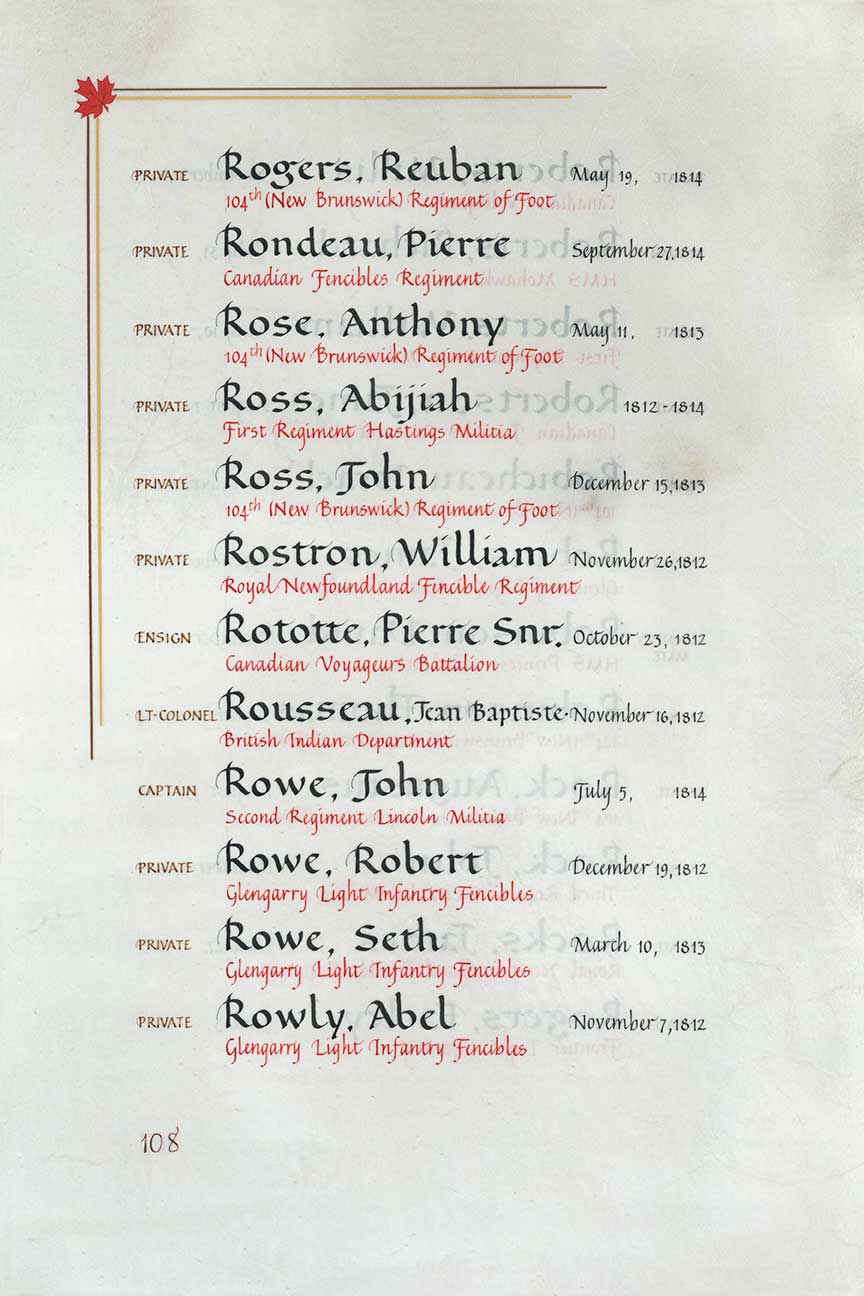 PRIVATE Rogers, Reuban May 19, 1814
104th (New Brunswick) Regiment of Foot
PRIVATE Rondeau, Pierre September 27, 1814
Canadian Fencibles Regiment
PRIVATE Rose, Anthony May 11, 1813
104th (New Brunswick) Regiment of Foot
PRIVATE Ross, Abijiah 1812 - 1814
First Regiment Hastings Militia
PRIVATE Ross, John December 15, 1813
104th (New Brunswick) Regiment of Foot
PRIVATE Rostron, William November 26, 1812
Royal Newfoundland Fencible Regiment
ENSIGN Rototte, Pierre Snr. October 23, 1812
Canadian Voyageurs Battalion
LT-COLONEL Rousseau, Jean Baptiste November 16, 1812
British Indian Department
CAPTAIN Rowe, John July 5, 1814
Second Regiment Lincoln Militia
PRIVATE Rowe, Robert December 19, 1812
Glengarry Light Infantry Fencibles
PRIVATE Rowe, Seth March 10, 1813
Glengarry Light Infantry Fencibles
PRIVATE Rowly, Abel November 7, 1812
Glengarry Light Infantry Fencibles
108